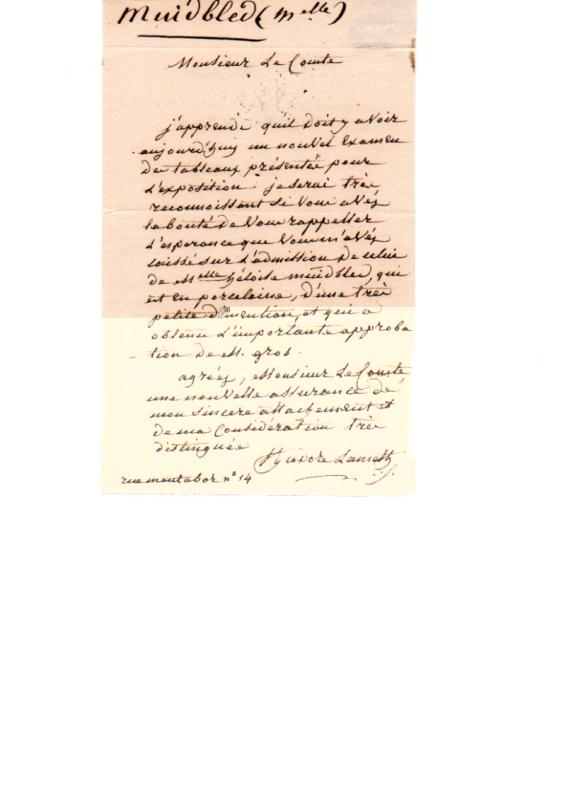 Muidbled (Melle)
Monsieur Le Comte
j'apprends qu'il doit y avoir
aujourd'huy un nouvel examen
des tableaux présentés pour
l'exposition. je serai très
reconnoissant si vous avés
la bonté de vous rappeller
l'esperance que vous m'avés
laissé sur l'admission de celui
de Melle héloïse muidbled, qui
est en porcelaine, d'une très
petite dimention, et qui a
obtenu l'importante approba
tion de M. gros.
agréés, Monsieur Le Comte
une nouvelle assurance de
mon sincere attachement et
de ma considération très
distinguée
Théodore Lameth
rue montabor n° 14